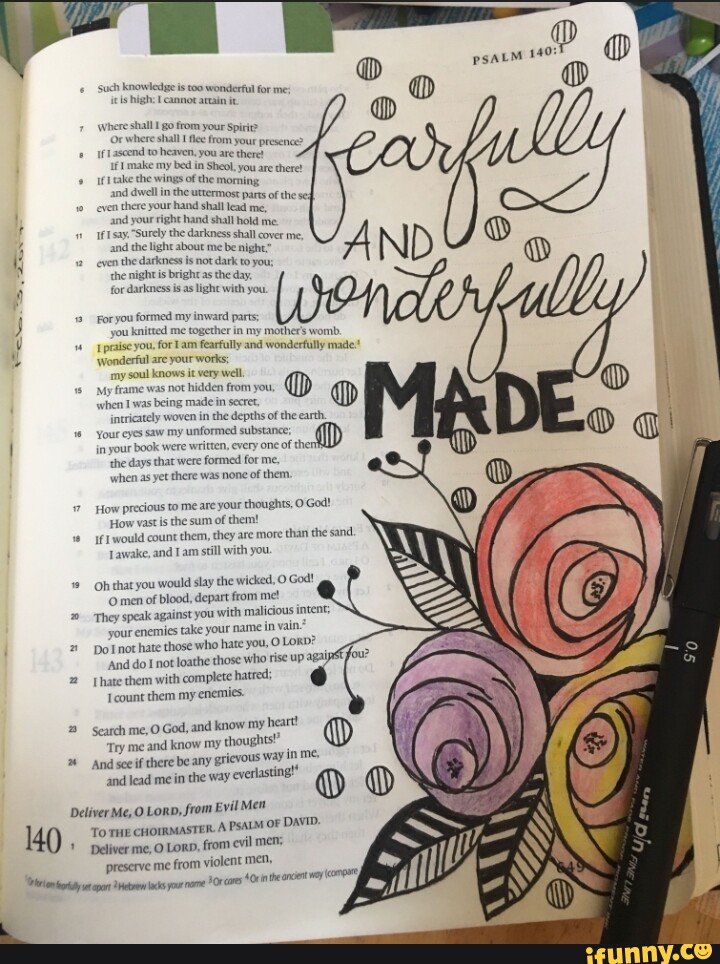 PSALM 140:1
6 Such knowledge is too wonderful for me;
it is high; I cannot attain it.
7 Where shall I go from your Spirit?
Or where shall I flee from your presence?
8 If I ascend to heaven, you are there!
If I make my bed in Sheol, you are there!
9 If I take the wings of the morning
and dwell in the uttermost parts of the sea,
10 even there your hand shall lead me,
and your right hand shall hold me.
11 If I say, "Surely the darkness shall cover me,
and the light about me be night,"
12 even the darkness is not dark to you;
the night is bright as the day,
for darkness is as light with you.
13 For you formed my inward parts;
you knitted me together in my mother's womb.
14 I praise you, for I am fearfully and wonderfully made.¹
Wonderful are your works;
my soul knows it very well.
15 My frame was not hidden from you,
when I was being made in secret,
intricately woven in the depths of the earth.
16 Your eyes saw my unformed substance;
in your book were written, every one of them,
the days that were formed for me,
when as yet there was none of them.
17 How precious to me are your thoughts, O God!
How vast is the sum of them!
18 If I would count them, they are more than the sand.
I awake, and I am still with you.
19 Oh that you would slay the wicked, O God!
O men of blood, depart from me!
20 They speak against you with malicious intent;
your enemies take your name in vain.²
21 Do I not hate those who hate you, O LORD?
And do I not loathe those who rise up against you?
22 I hate them with complete hatred;
I count them my enemies.
23 Search me, O God, and know my heart!
Try me and know my thoughts!³
24 And see if there be any grievous way in me,
and lead me in the way everlasting!⁴
Deliver Me, O LORD, from Evil Men
TO THE CHOIRMASTER. A PSALM OF DAVID.
140 1 Deliver me, O LORD, from evil men;
preserve me from violent men,
¹Or for I am fearfully set apart ²Hebrew lacks your name ³Or cares ⁴Or in the ancient way (compare
649
fearfully
AND
wonderfully
MADE
Feb. 3, 2017
142
143
0.5
uni pin FINE LINE
ifunny.co